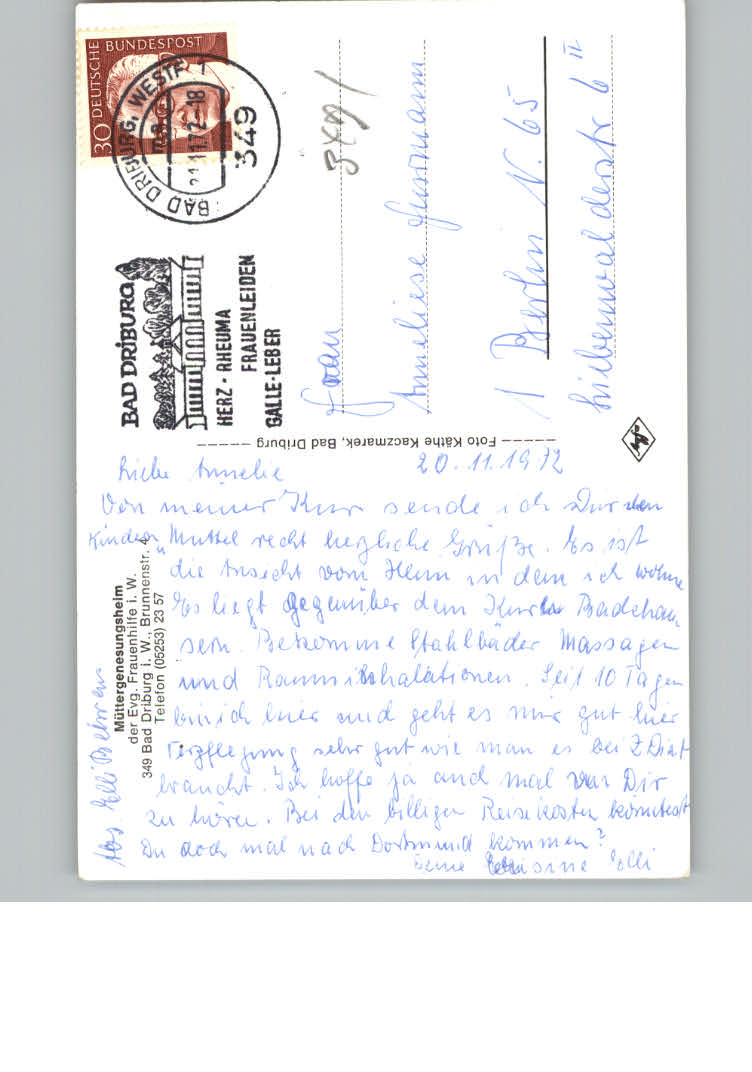 30 DEUTSCHE BUNDESPOST
BAD DRIBURG, WESTF 1
21.11.72-18
349
BAD DRIBURG
HERZ - RHEUMA
FRAUENLEIDEN
GALLE-LEBER
Frau
Anneliese
1 Berlin N. 65
Liebenwalderstr 6 II
Foto Käthe Kaczmarek, Bad Driburg
20.11.1972
Liebe Annelie
Von meiner Kur sende ich Dir den
Kindern Muttel recht herzliche Grüße. Es ist
die Ansicht vom Heim in dem ich wohne
Es liegt gegenüber dem Badehäu
sern. Bekomme Stahlbäder Massagen
und Rauminhalationen. Seit 10 Tagen
bin ich hier und geht es mir gut hier
Verpflegung sehr gut wie man es bei Z Diät
braucht. Ich hoffe ja auch mal von Dir
zu hören. Bei den billigen Reisekosten könntest
Du doch mal nach Dortmund kommen?
Deine Cousine Elli
Müttergenesungsheim
der Evg. Frauenhilfe i. W.
349 Bad Driburg i. W., Brunnenstr. 4
Telefon (05253) 23 57
Abs. Elli Behrens